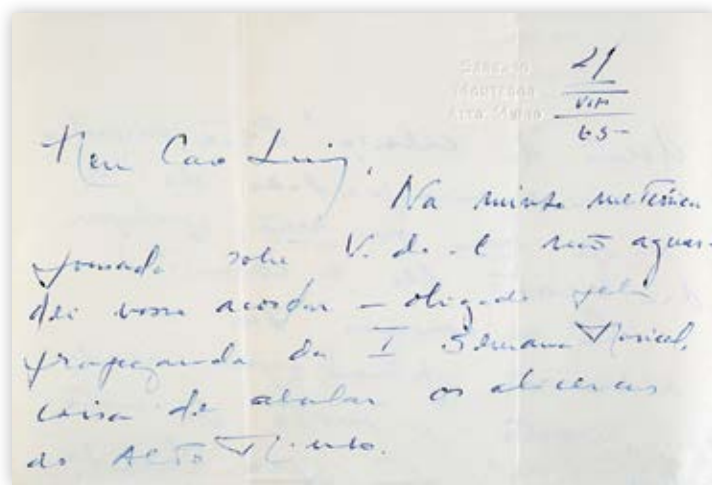 ALTO MINHO
21
VIII
65
Meu Caro Luiz,
Na minha meteórica
jornada sobre V. do C não aguar-
dei vosso acordar – obrigado pela
propaganda da I Semana Musical,
coisa de abalar os alicerces
do Alto Minho.